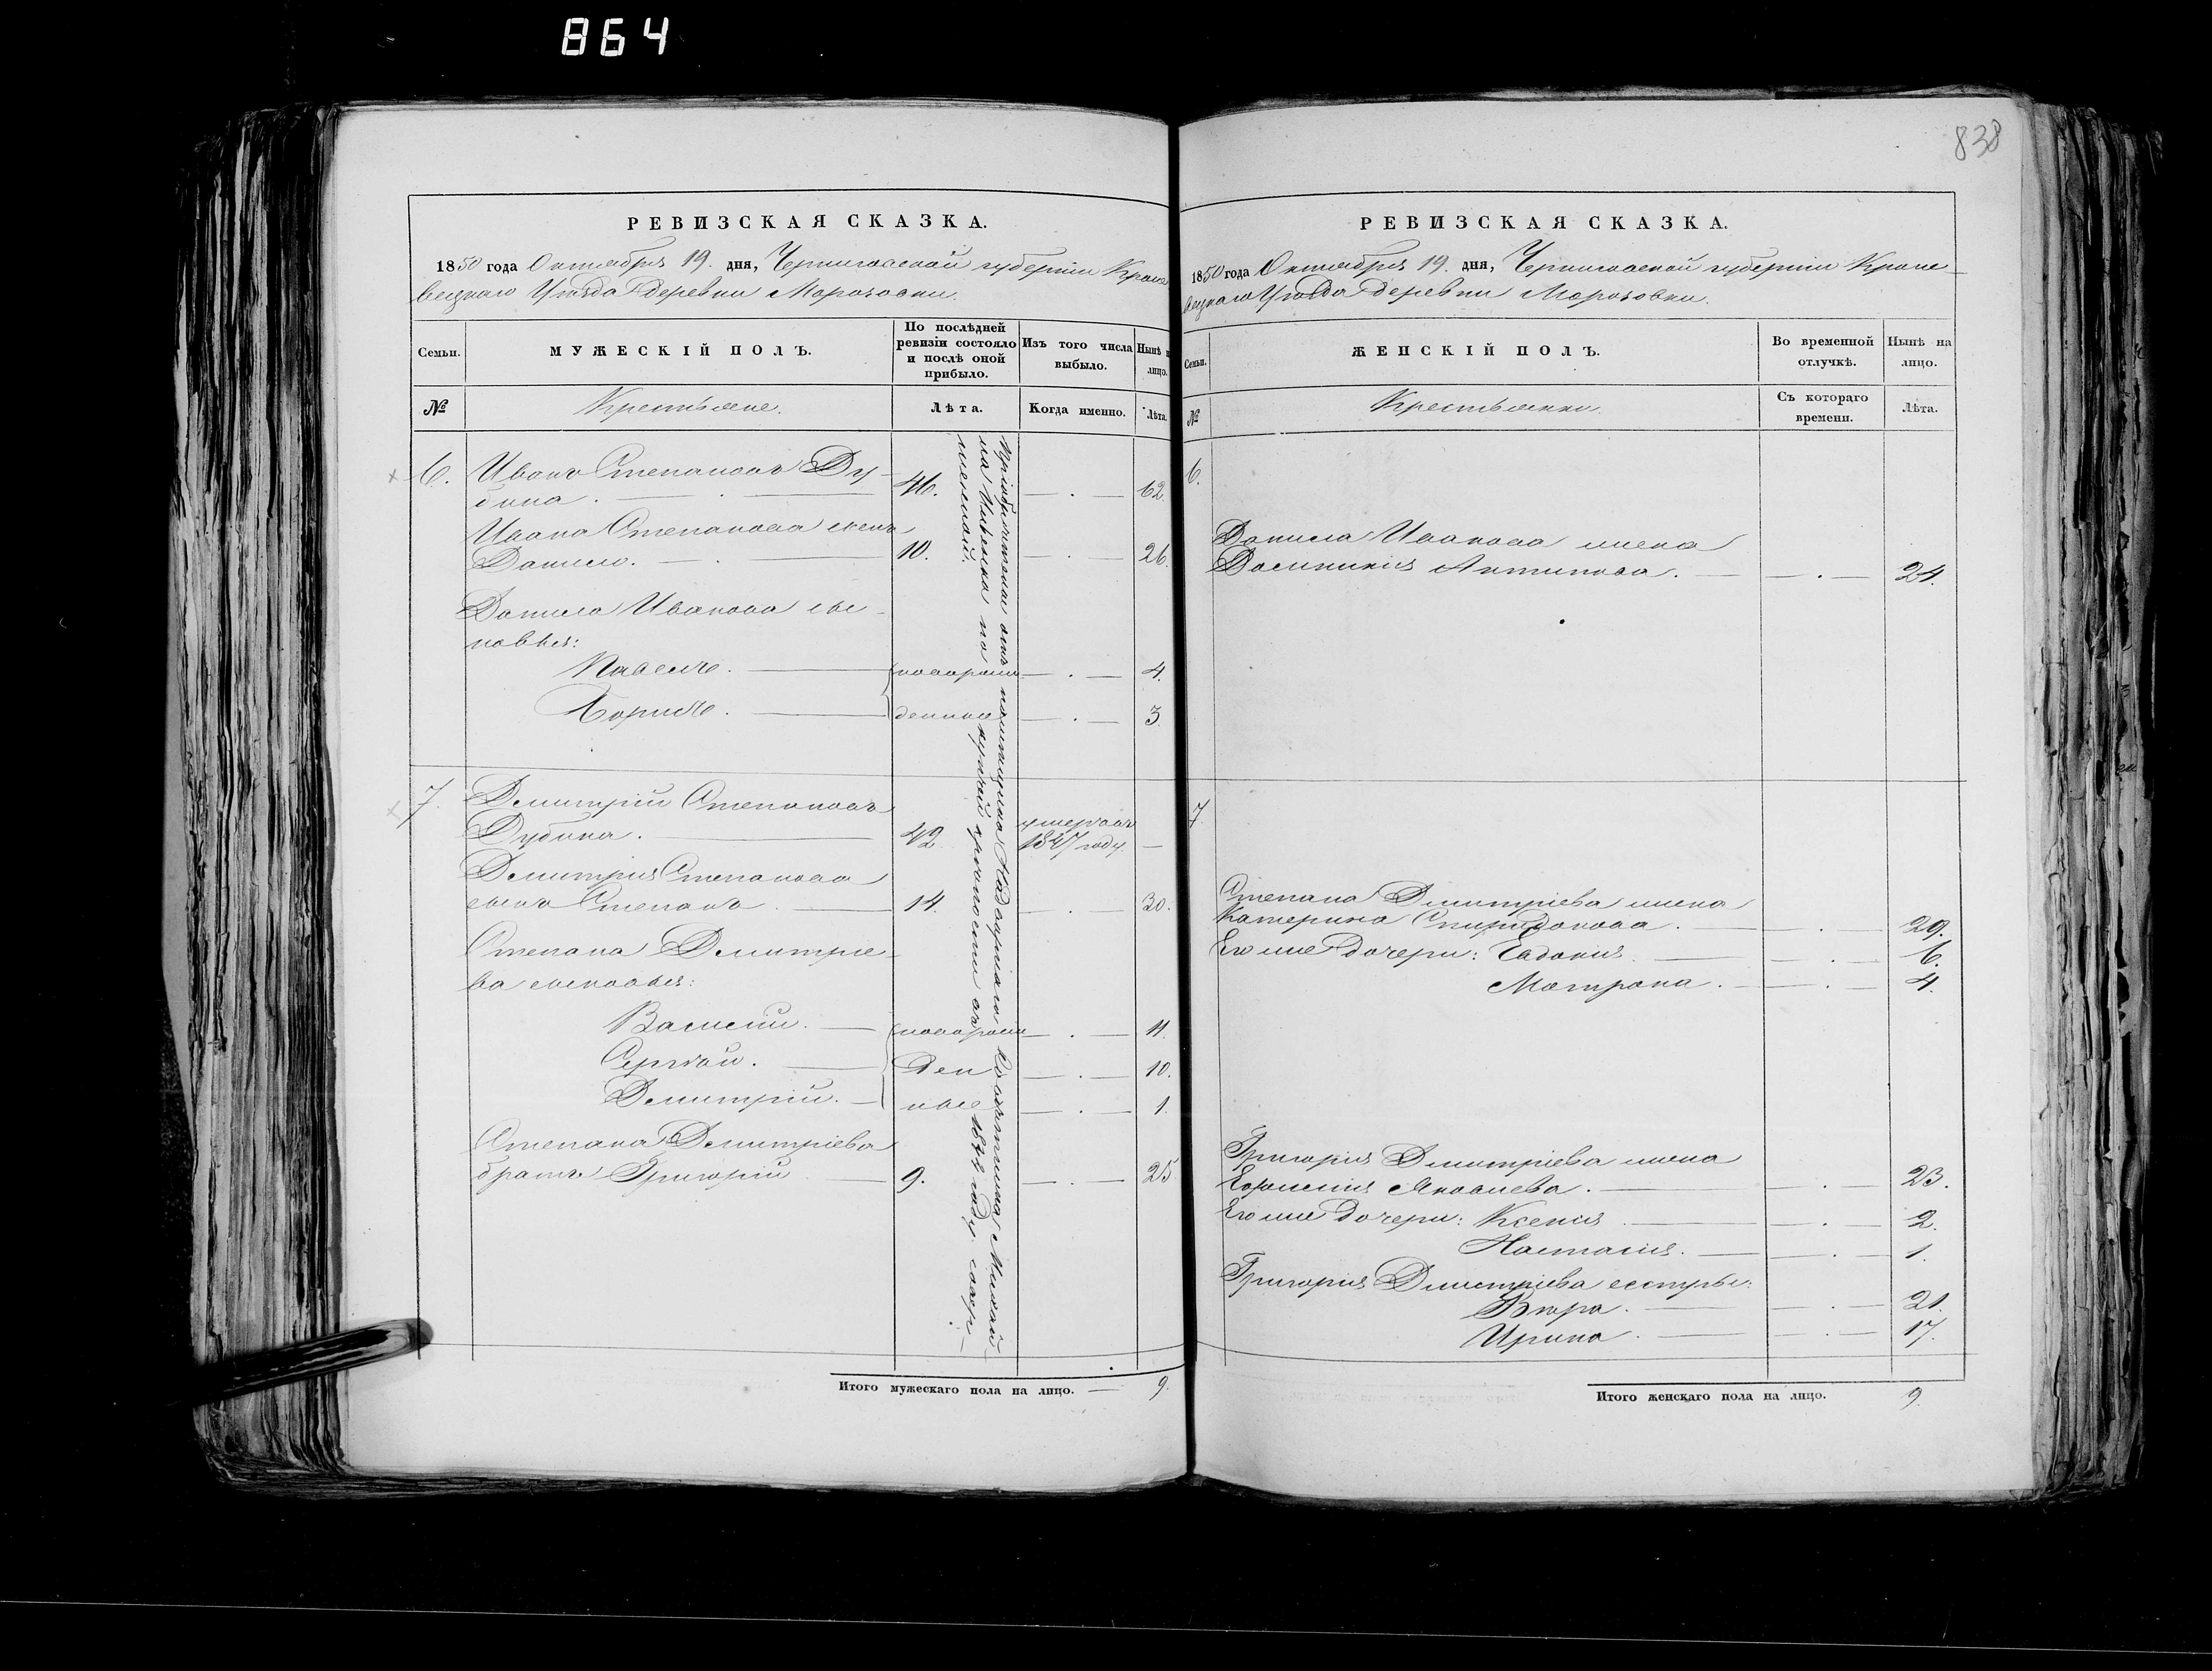 864
838
РЕВИЗСКАЯ СКАЗКА.
1850 года Октября 19. дня, Черниговской губернии Кроле
вецкаго Уѣзда деревни Морозовки.
Семьи.
МУЖЕСКІЙ ПОЛЪ.
По послѣдней ревизіи состояло и послѣ оной прибыло.
Изъ того числа выбыло.
Нынѣ н лицо.
№
Крестьяне.
Лѣта.
Когда именно.
Лѣта.
6. Иванъ Степановъ Ду-
бина. 46. 62.
Ивана Степанова сынъ
Данило. 10. 26.
Данила Иванова сы-
новья:
Павелъ. новорож 4.
Борисъ. денные 3.
7. Дмитрій Степановъ
Дубина. 42. умеръ въ 1847 году. —
Дмитрія Степанова
сынъ Степанъ 14. 30.
Степана Дмитріе-
ва сыновья:
Василій. новорож 11.
Сергѣй. ден 10.
Дмитрій. ные 1.
Степана Дмитріева
братъ Григорій 9. 25
помѣщика Надворнаго Совѣтника
на по купчей крѣпости въ 1844 году
Итого мужескаго пола на лицо. — 9.
РЕВИЗСКАЯ СКАЗКА.
1850 года Октября 19. дня, Черниговской губернии Кроле-
вецкаго Уѣзда деревни Морозовки.
Семьи.
ЖЕНСКІЙ ПОЛЪ.
Во временной отлучкѣ.
Нынѣ на лицо.
№
Крестьянки.
Съ котораго времени.
Лѣта.
6.
Данила Иванова жена
Домникія Антипова. 24.
7.
Степана Дмитріева жена
Катерина Спиридонова. 29.
Его же дочери: Евдокія 6.
Матрона. 4.
Григорія Дмитріева жена
Евфимія Яковлева. 23.
Его же дочери: Ксенія 2.
Настасія. 1.
Григорія Дмитріева сестры:
Вѣра. 21.
Ирина. 17.
Итого женскаго пола на лицо. 9